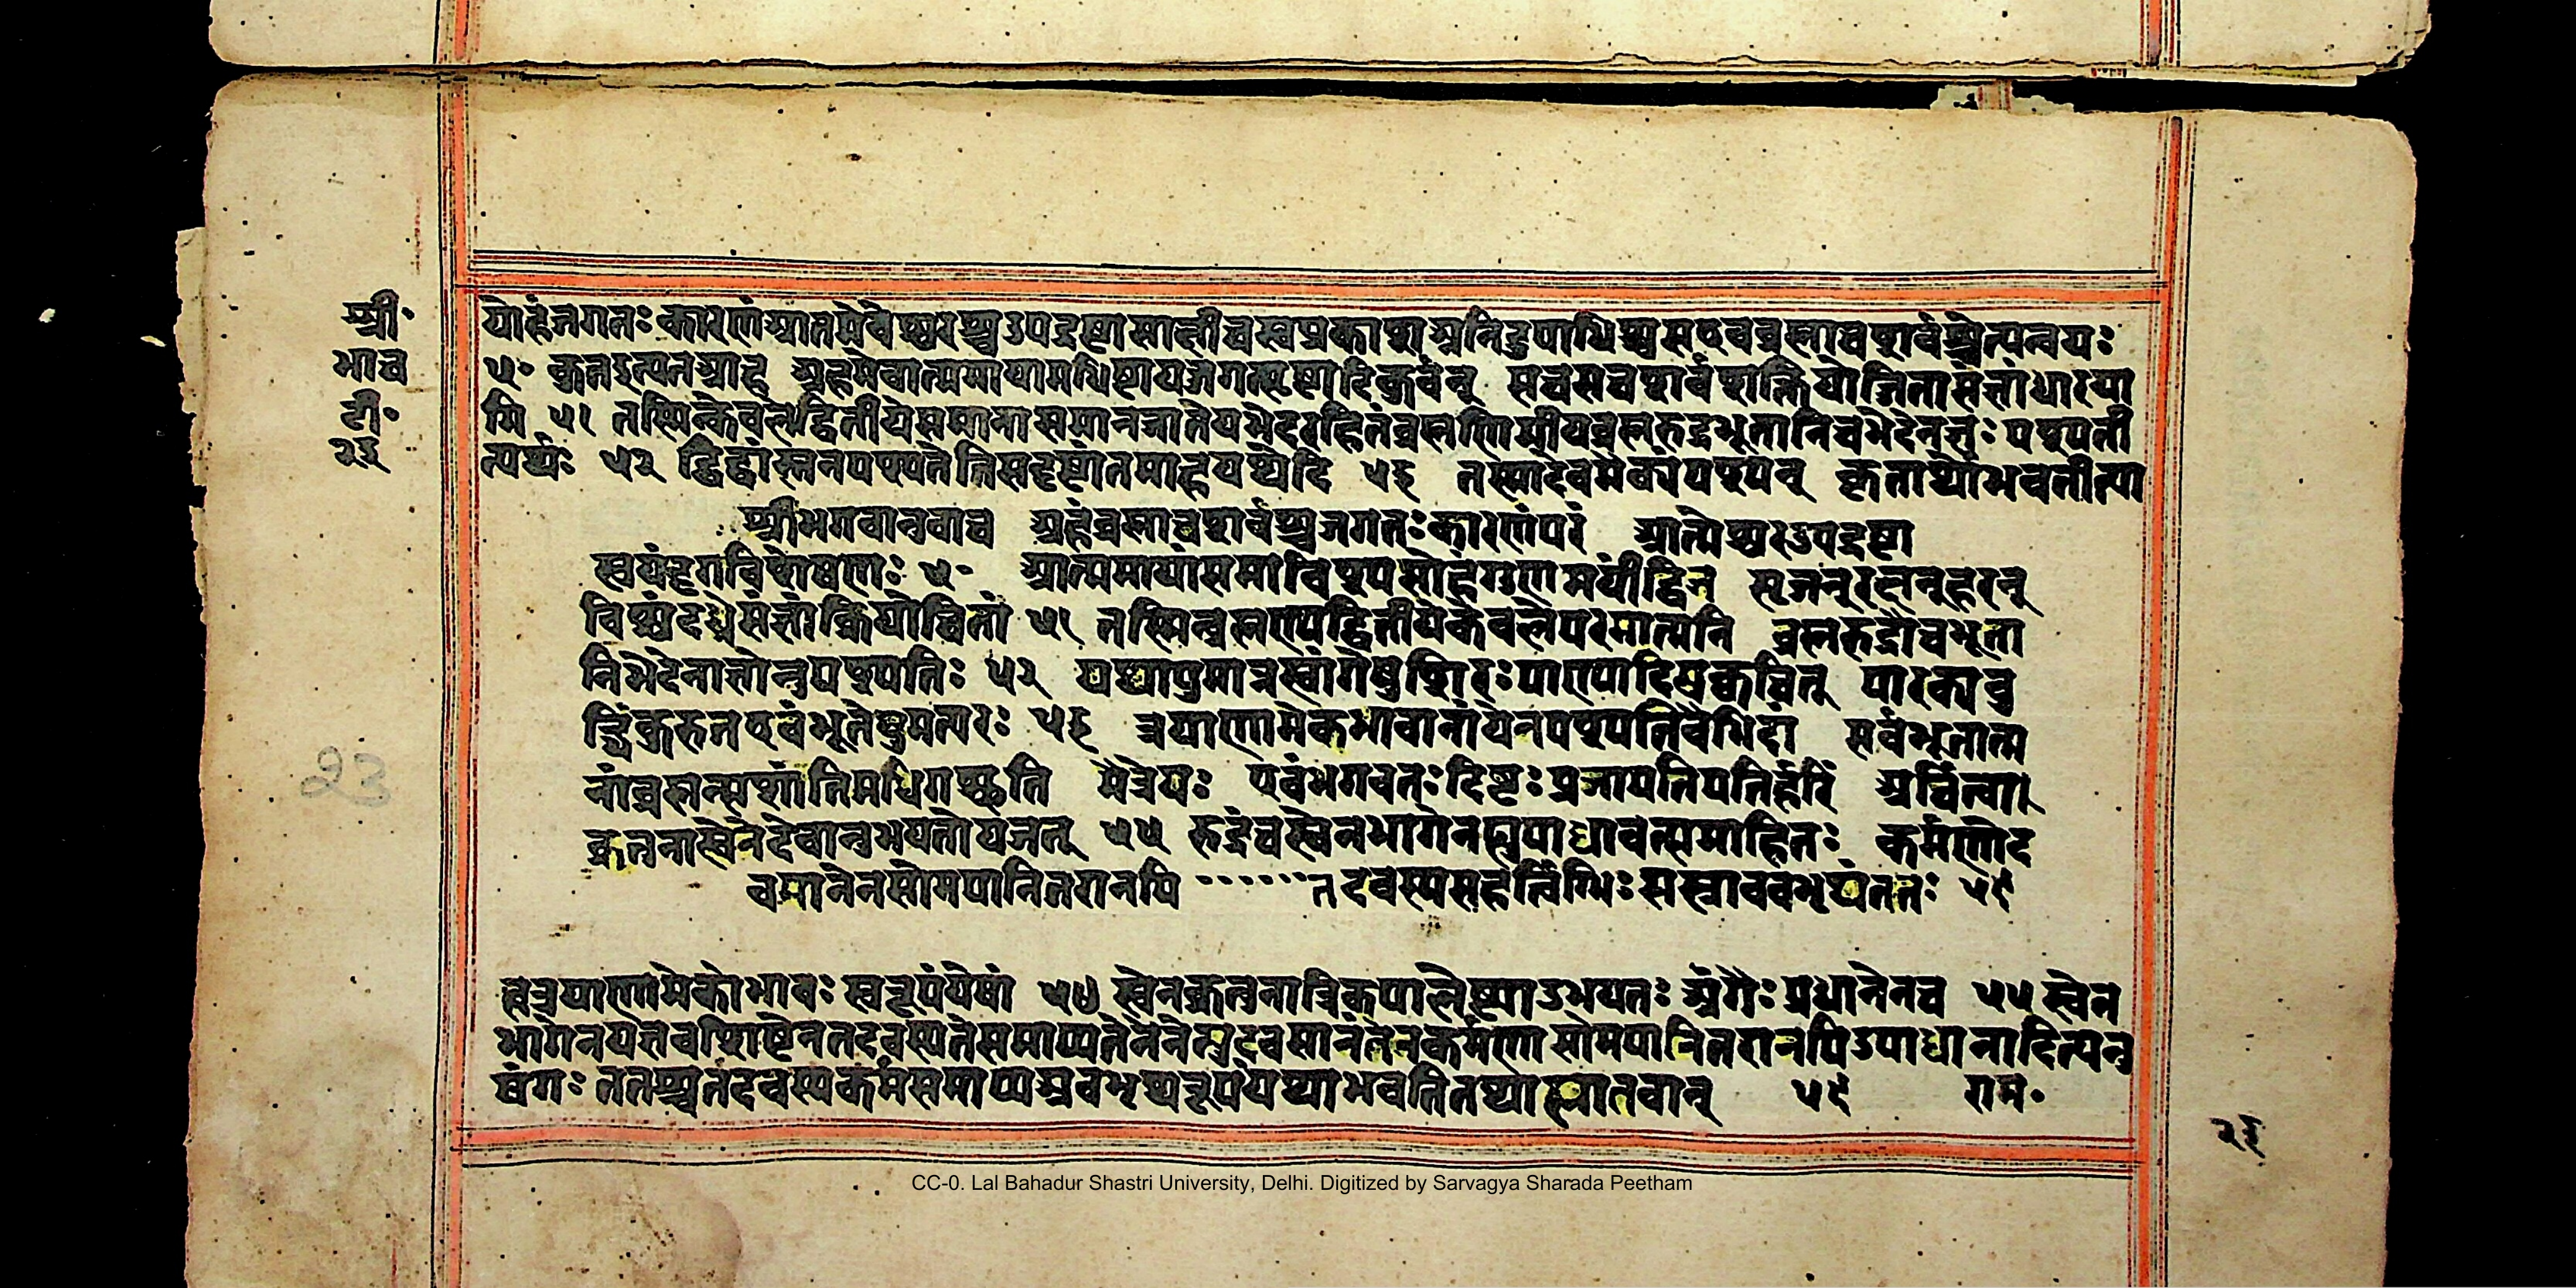 श्री॰
भाच
टी॰
२३
योहंजगतः कारणंआतमेवेश्वरश्चउपद्रष्टासाक्षीचस्वप्रकाशश्चनिरुपाधिश्चसएवब्रह्माचशर्वश्चेत्यन्वयः
५॰ कुतइत्यतआह अहमेवात्ममायामधिष्टायजगत्सृष्टादिकुर्वन् सचसचशर्वशक्तियोजितासंज्ञांधारया
मि ५१ तस्मिन्केवलेद्वितीयेसमानासमानजातेयभेदरहितंब्रह्मणिमीयब्रह्मरुद्रभूतानिचभेदेनज्ञः पश्यती
त्यर्थः ५२ द्विद्वांस्तुनपपश्यतेतिसदृष्टांतमाहयथेदि ५३ तस्मादेवमेक्यंपश्यन् कृतार्थोभवतीत्या
श्रीभगवानुवाच अहंब्रह्माचशर्वश्चजगतःकारणंपरं आत्मेश्वरउपद्रष्टा
स्वयंदृगविशेषणः ५॰ आत्ममायांसमाविश्यसोहंगुणमयींद्विज सृजन्रक्षन्हरन्
विश्वंदध्रेसंज्ञांक्रियोचितां ५१ तस्मिन्ब्रह्मण्यद्वितीयेकेवलेपरमात्मनि ब्रह्मरुद्रौचभूता
निभेदेनाज्ञोनुपश्यतिः ५२ यथापुमान्नस्वांगेषुशिरःपाण्यादिषुक्वचित् पारक्यबु
द्धिंकुरुतएवंभूतेषुमत्परः ५३ त्रयाणामेकभावानांयेनपश्यतिवैभिदां सर्वभूतात्म
नांब्रह्मन्सशांतिमधिगच्छति मैत्रेयः एवंभगवतःदिष्टःप्रजापतिपतिर्हरिं अर्चित्वा
क्रतुनास्वेनदेवानुभयतोयजत् ५५ रुद्रंचस्वेनभागेनह्युपाधावत्समाहितः कर्मणोद
वसानेनसोमपानितरानपि ······तदवस्यसहर्त्विग्भिःसस्नाववभृथंततः ५६
क्षेत्रयाणामेकोभावः स्वरूपंयेषां ५४ स्वेनक्रतुनात्रिकपालेष्ट्याऽभयतः अंगैः प्रधानेनच ५५ स्वेन
भागेनयज्ञेवशिष्टेनतदवस्यतेसमाप्यतेनेनेत्युदवसानंतेनकर्मणासोमपानितरानपिउपाधानादित्यनु
षंगः ततश्चतदवस्यकर्मसमाप्यअवभृथरूपंयथाभवतितथास्नातवान् ५६ राम॰
२३
23
CC-0. Lal Bahadur Shastri University, Delhi. Digitized by Sarvagya Sharada Peetham